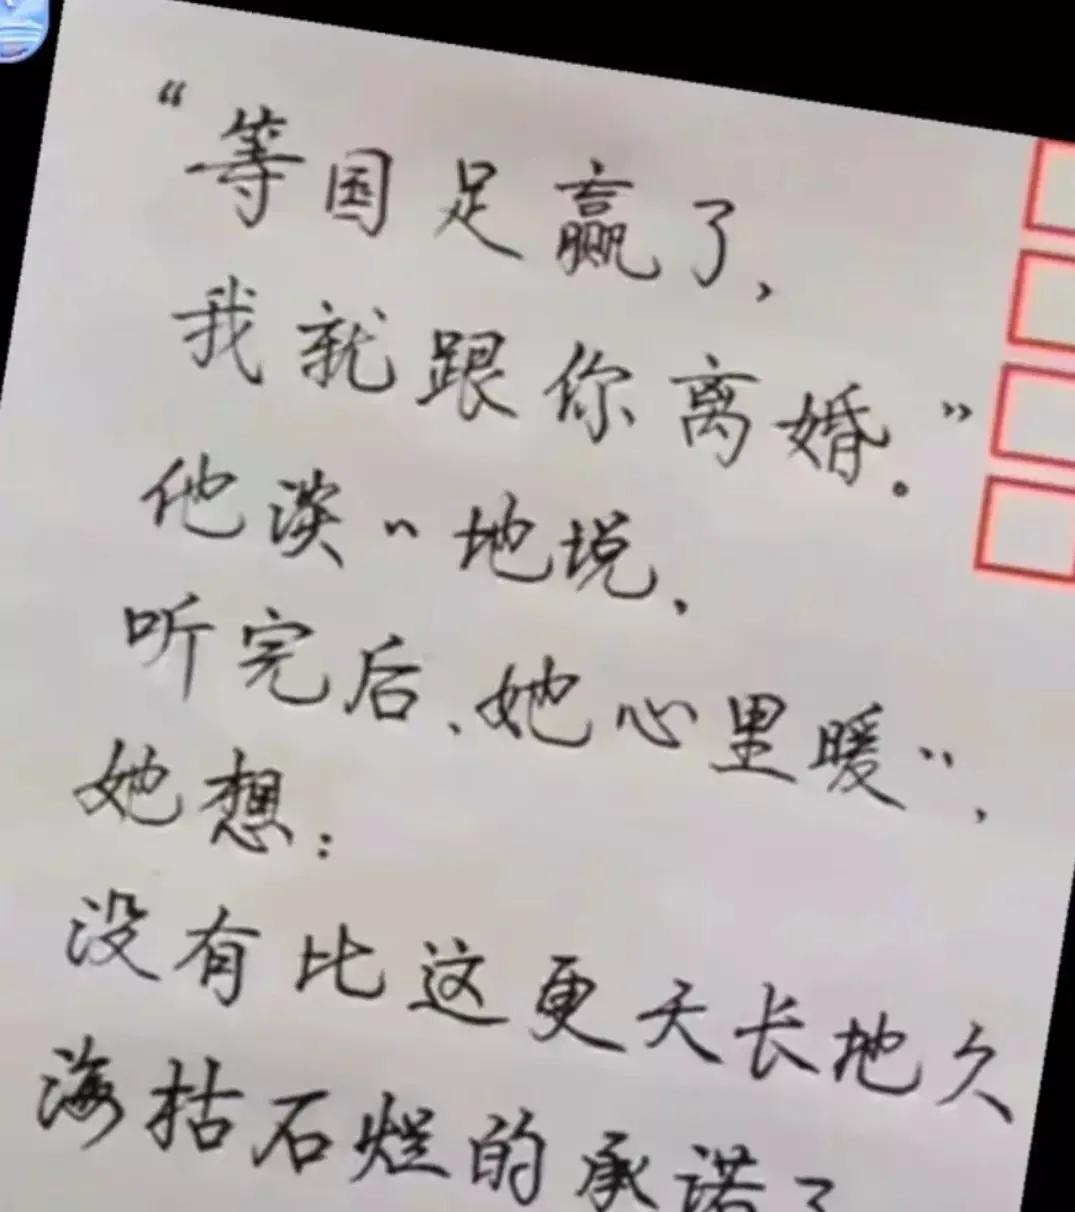 “等国足赢了,
我就跟你离婚。”
他淡〃地说,
听完后、她心里暖〃,
她想:
没有比这更天长地久
海枯石烂的承诺了